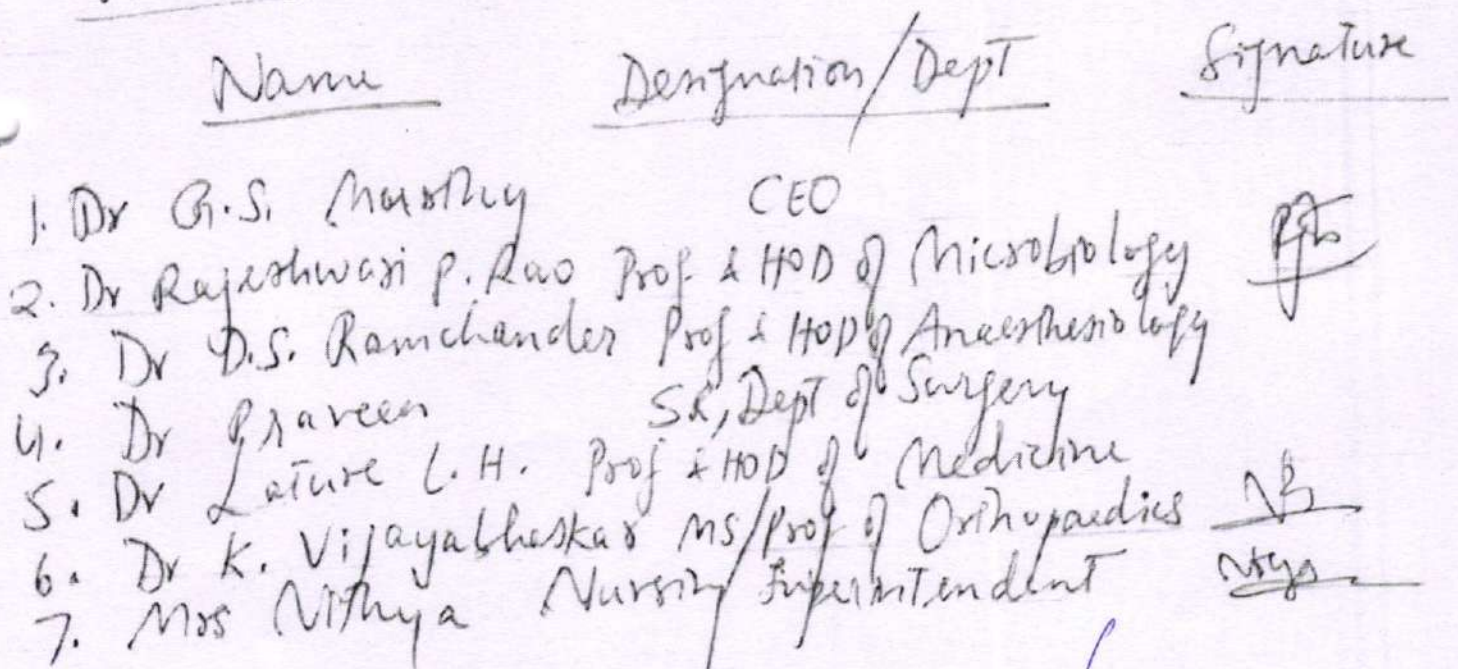 Name Designation/Dept Signature
1. Dr G.S. Murthy CEO
2. Dr Rajeshwari P. Rao Prof & HOD of Microbiology
3. Dr D.S. Ramchander Prof & HOD of Anaesthesiology
4. Dr Praveen SR, Dept of Surgery
5. Dr Lature L.H. Prof & HOD of Medicine
6. Dr K. Vijayabhaskar MS/Prof of Orthopaedics
7. Mrs Nithya Nursing Superintendent